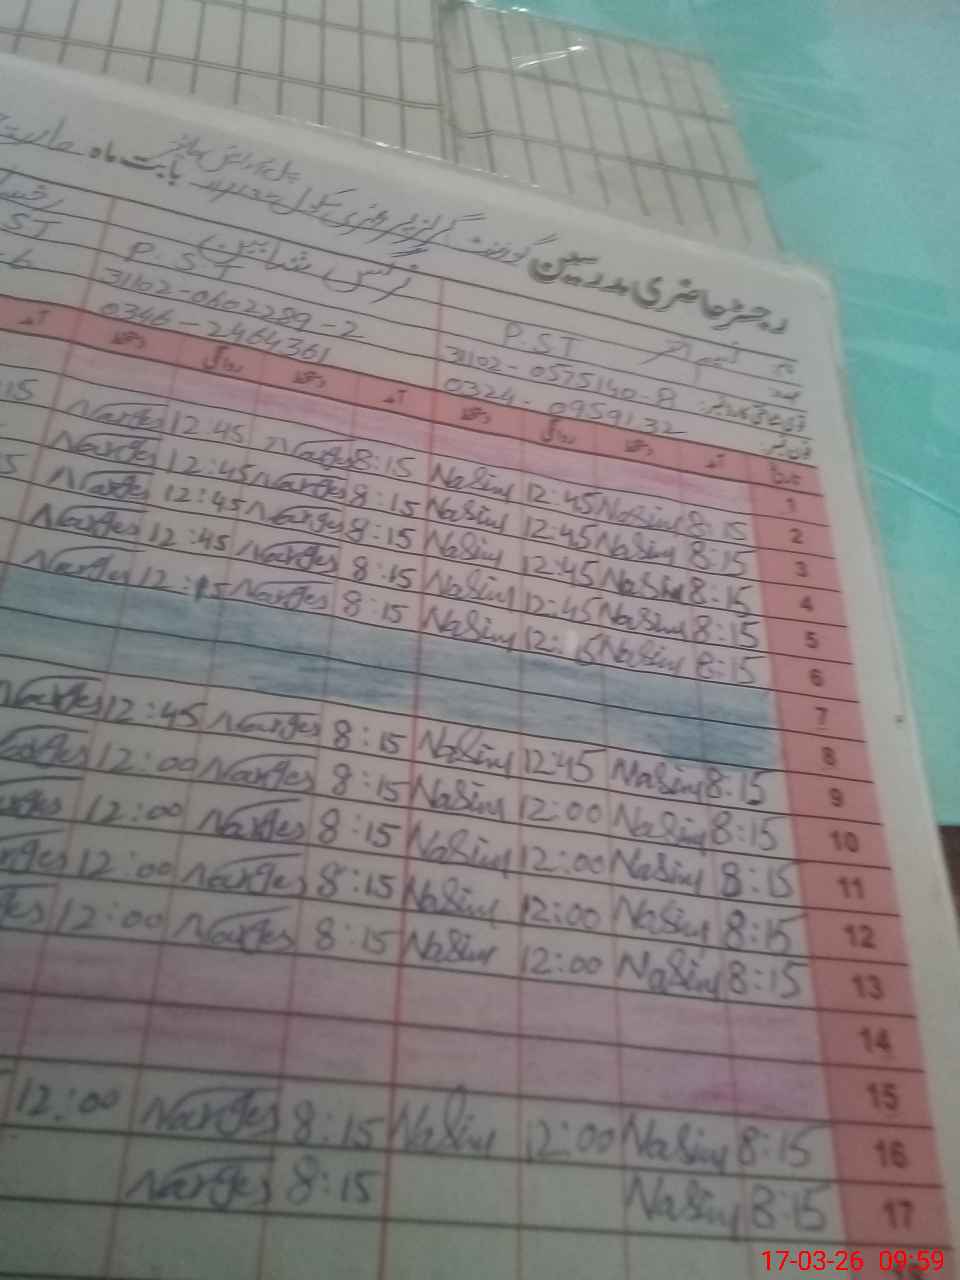 رجسٹر حاضری مدرسین گورنمنٹ گرلز پرائمری سکول بابت ماہ مارچ
نام نسیم اختر نرگس شاہین
عہدہ P.S.T P.ST ST
قومی شناختی کارڈ نمبر: 31102-0575140-8 31102-0602289-2
فون نمبر: 0324-0959132 0346-2464361
تاریخ آمد دستخط روانگی دستخط آمد دستخط روانگی دستخط آمد
1
2 8:15 Nasim 12:45 Nasim 8:15 Narges 12:45 Narges
3 8:15 Nasim 12:45 Nasim 8:15 Narges 12:45 Narges
4 8:15 Nasim 12:45 Nasim 8:15 Narges 12:45 Narges
5 8:15 Nasim 12:45 Nasim 8:15 Narges 12:45 Narges
6 8:15 Nasim 12:15 Nasim 8:15 Narges 12:15 Narges
7
8
9 8:15 Nasim 12:45 Nasim 8:15 Narges 12:45 Narges
10 8:15 Nasim 12:00 Nasim 8:15 Narges 12:00 Narges
11 8:15 Nasim 12:00 Nasim 8:15 Narges 12:00 Narges
12 8:15 Nasim 12:00 Nasim 8:15 Narges 12:00 Narges
13 8:15 Nasim 12:00 Nasim 8:15 Narges 12:00
14
15
16 8:15 Nasim 12:00 Nasim 8:15 Narges 12:00
17 8:15 Nasim 8:15 Narges
17-03-26 09:59